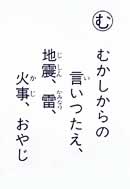 む
むかしからの
言いつたえ、
地震、雷、
火事、おやじ